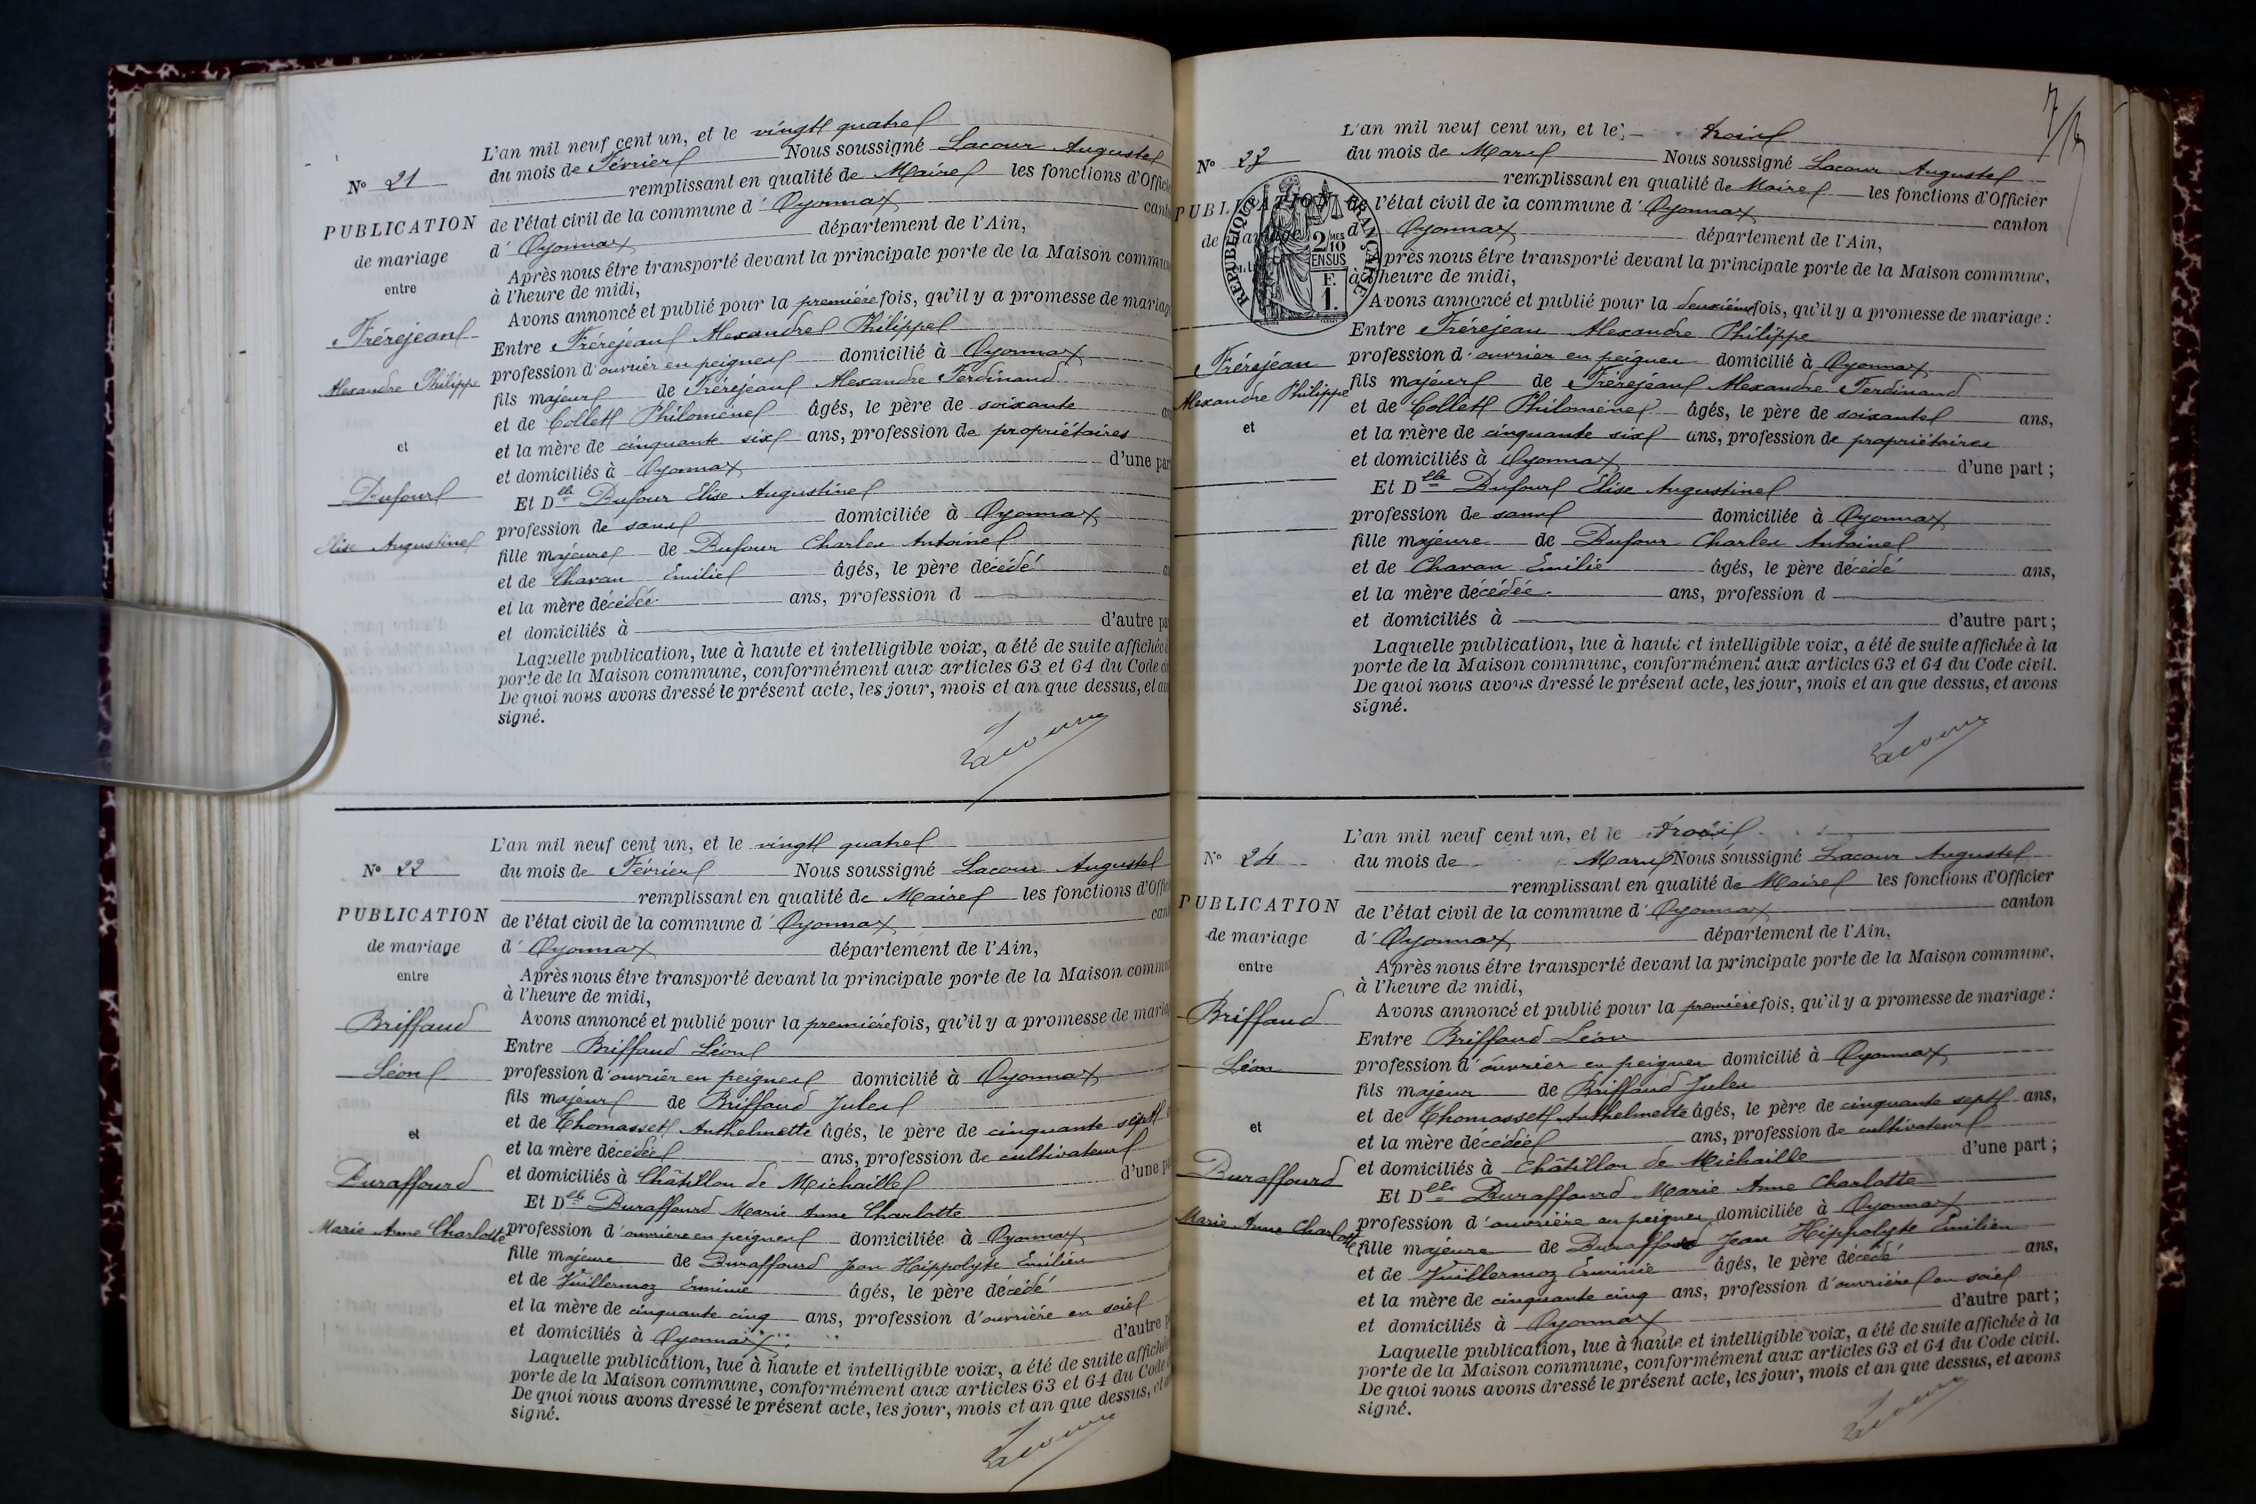 L'an mil neuf cent un, et le vingt quatre
du mois de Février Nous soussigné Lacour Auguste
N° 21
remplissant en qualité de Maire les fonctions d'Offici
PUBLICATION
de l'état civil de la commune d'Oyonnax cant
d'Oyonnax département de l'Ain,
de mariage
Après nous être transporté devant la principale porte de la Maison commun
entre
à l'heure de midi,
Avons annoncé et publié pour la première fois, qu'il y a promesse de mariag
Frérejean
Entre Frérejean Alexandre Philippe
profession d'ouvrier en peignes domicilié à Oyonnax
Alexandre Philippe
fils majeur de Frérejean Alexandre Ferdinand
et de Collet Philomène âgés, le père de soixante an
et la mère de cinquante six ans, profession de propriétaires
et
et domiciliés à Oyonnax d'une par
Dufour
Et Dlle Dufour Elise Augustine
profession de sans domiciliée à Oyonnax
Elise Augustine
fille majeure de Dufour Charles Antoine
et de Charan Emilie âgés, le père décédé a
et la mère décédée ans, profession d
et domiciliés à d'autre pa
Laquelle publication, lue à haute et intelligible voix, a été de suite affichée à
porte de la Maison commune, conformément aux articles 63 et 64 du Code ci
De quoi nous avons dressé le présent acte, les jour, mois et an que dessus, et av
signé.
Lacour
L'an mil neuf cent un, et le vingt quatre
N° 22
du mois de Février Nous soussigné Lacour Auguste
remplissant en qualité de Maire les fonctions d'Offic
PUBLICATION
de l'état civil de la commune d'Oyonnax can
de mariage
d'Oyonnax département de l'Ain,
entre
Après nous être transporté devant la principale porte de la Maison commu
à l'heure de midi,
Briffaud
Avons annoncé et publié pour la première fois, qu'il y a promesse de maria
Entre Briffaud Léon
Léon
profession d'ouvrier en peignes domicilié à Oyonnax
fils majeur de Briffaud Jules
et
et de Thomasset Anthelmette âgés, le père de cinquante sept
et la mère décédée ans, profession de cultivateur
Duraffourd
et domiciliés à Châtillon de Michaille d'une pa
Et Dlle Duraffourd Marie Anne Charlotte
Marie Anne Charlotte
profession d'ouvrière en peignes domiciliée à Oyonnax
fille majeure de Duraffourd Jean Hippolyte Emilien
et de Vuillermoz Erminie âgés, le père décédé
et la mère de cinquante cinq ans, profession d'ouvrière en soie
et domiciliés à Oyonnax d'autre p
Laquelle publication, lue à haute et intelligible voix, a été de suite affichée
porte de la Maison commune, conformément aux articles 63 et 64 du Code
De quoi nous avons dressé le présent acte, les jour, mois et an que dessus, et
signé.
Lacour
L'an mil neuf cent un, et le trois
N° 23
du mois de Mars Nous soussigné Lacour Auguste
remplissant en qualité de Maire les fonctions d'Officier
PUBLICATION
de l'état civil de la commune d'Oyonnax canton
de mariage
d'Oyonnax département de l'Ain,
RÉPUBLIQUE FRANÇAISE
2/10 MES
EN SUS
F.
1.
Après nous être transporté devant la principale porte de la Maison commune,
à l'heure de midi,
Avons annoncé et publié pour la deuxième fois, qu'il y a promesse de mariage :
Entre Frérejean Alexandre Philippe
Frérejean
profession d'ouvrier en peignes domicilié à Oyonnax
Alexandre Philippe
fils majeur de Frérejean Alexandre Ferdinand
et de Collet Philomène âgés, le père de soixante ans,
et
et la mère de cinquante six ans, profession de propriétaires
et domiciliés à Oyonnax d'une part ;
Et Dlle Dufour Elise Augustine
profession de sans domiciliée à Oyonnax
fille majeure de Dufour Charles Antoine
et de Charan Emilie âgés, le père décédé ans,
et la mère décédée ans, profession d
et domiciliés à d'autre part ;
Laquelle publication, lue à haute et intelligible voix, a été de suite affichée à la
porte de la Maison commune, conformément aux articles 63 et 64 du Code civil.
De quoi nous avons dressé le présent acte, les jour, mois et an que dessus, et avons
signé.
Lacour
L'an mil neuf cent un, et le trois
N° 24
du mois de Mars Nous soussigné Lacour Auguste
remplissant en qualité de Maire les fonctions d'Officier
PUBLICATION
de l'état civil de la commune d'Oyonnax canton
de mariage
d'Oyonnax département de l'Ain,
entre
Après nous être transporté devant la principale porte de la Maison commune,
à l'heure de midi,
Briffaud
Avons annoncé et publié pour la première fois, qu'il y a promesse de mariage :
Entre Briffaud Léon
Léon
profession d'ouvrier en peignes domicilié à Oyonnax
fils majeur de Briffaud Jules
et
et de Thomasset Anthelmette âgés, le père de cinquante sept ans,
et la mère décédée ans, profession de cultivateur
Duraffourd
et domiciliés à Châtillon de Michaille d'une part ;
Et Dlle Duraffourd Marie Anne Charlotte
Marie Anne Charlotte
profession d'ouvrière en peignes domiciliée à Oyonnax
fille majeure de Duraffourd Jean Hippolyte Emilien
et de Vuillermoz Erminie âgés, le père décédé ans,
et la mère de cinquante cinq ans, profession d'ouvrière en soie
et domiciliés à Oyonnax d'autre part ;
Laquelle publication, lue à haute et intelligible voix, a été de suite affichée à la
porte de la Maison commune, conformément aux articles 63 et 64 du Code civil.
De quoi nous avons dressé le présent acte, les jour, mois et an que dessus, et avons
signé.
Lacour